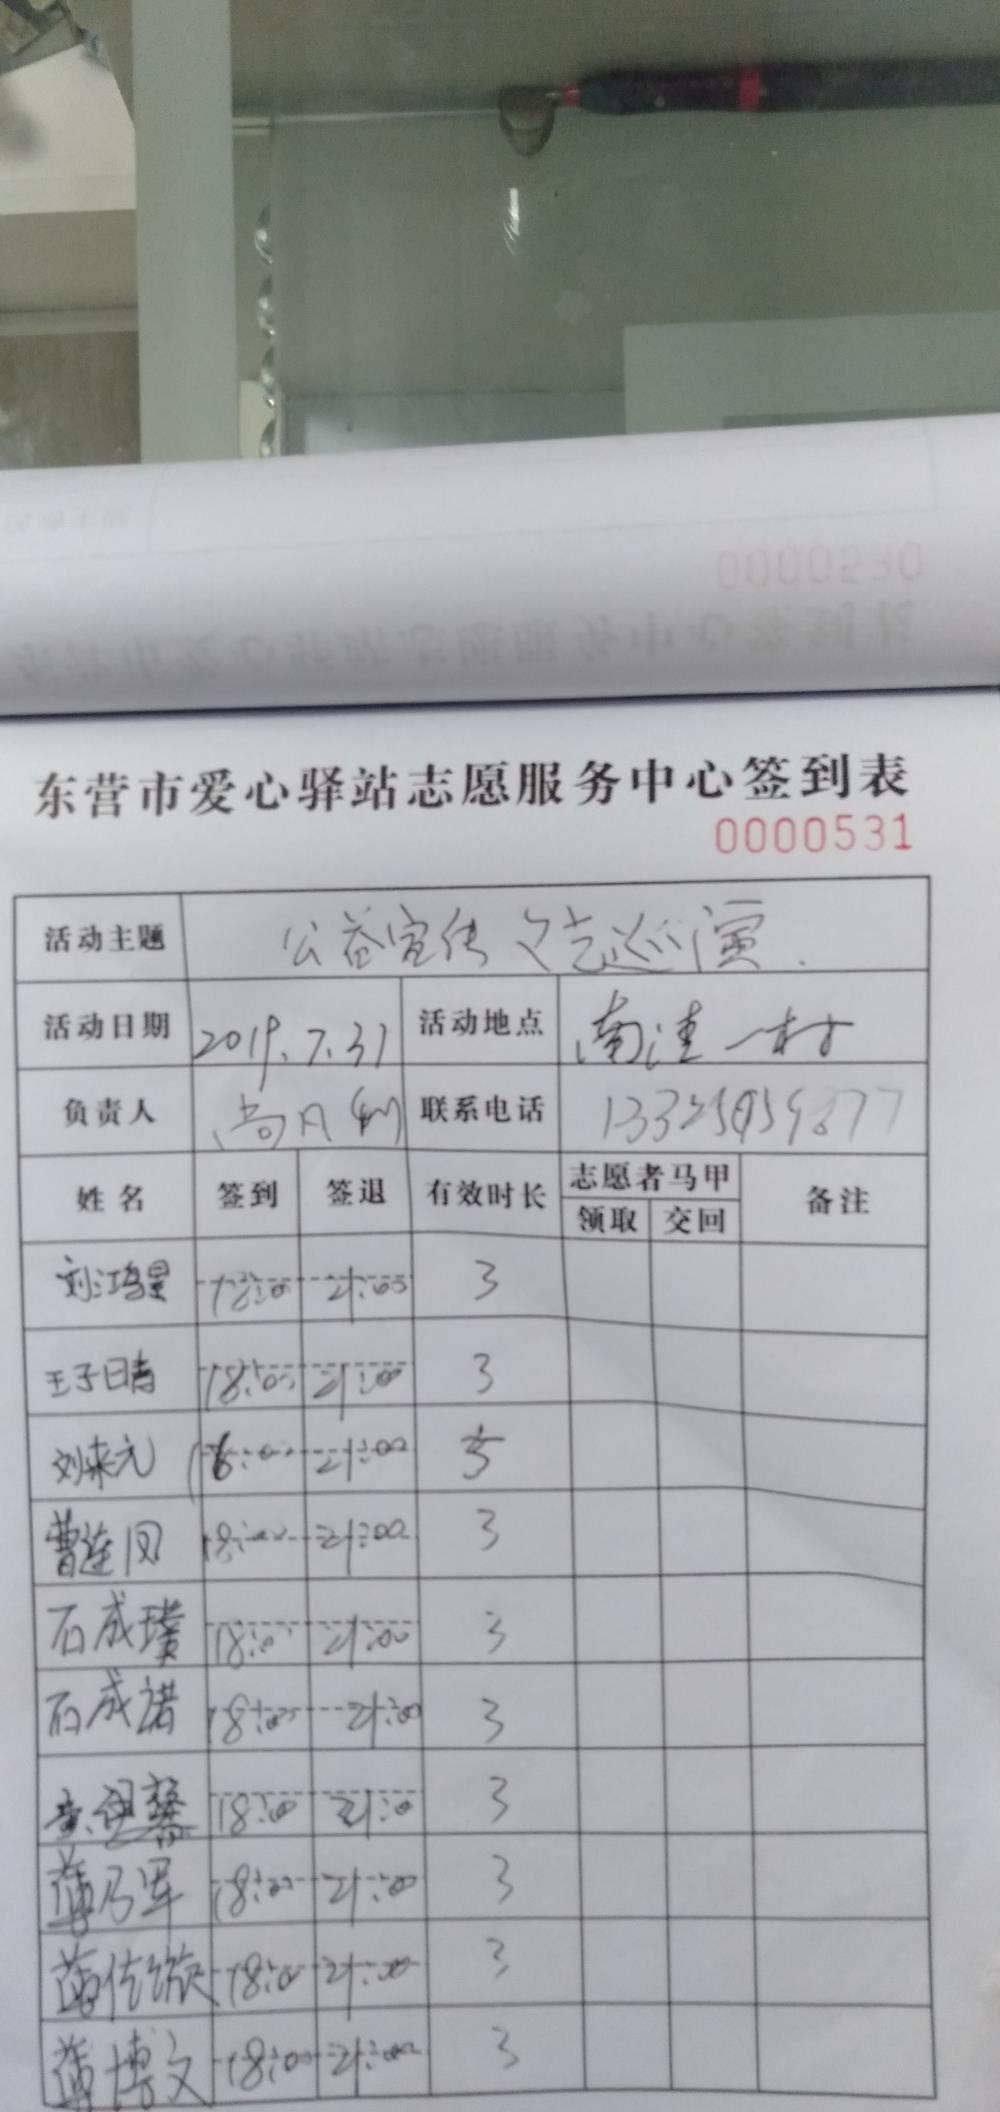 东营市爱心驿站志愿服务中心签到表
0000531
活动主题 公益宣传文艺巡演.
活动日期 2019.7.31 活动地点 南洼一村
负责人 尚凡利 联系电话
姓名 签到 签退 有效时长 志愿者马甲 备注
领取 交回
刘江鸿昊 18:00 21:00 3
王子晴 18:00 21:00 3
刘来元 16:00 21:00 5
曹连凤 18:00 21:00 3
石成璞 18:00 21:00 3
石成诺 18:00 21:00 3
18:00 21:00 3
薄乃军 18:00 21:00 3
薄佳 18:00 21:00 3
薄博文 18:00 21:00 3